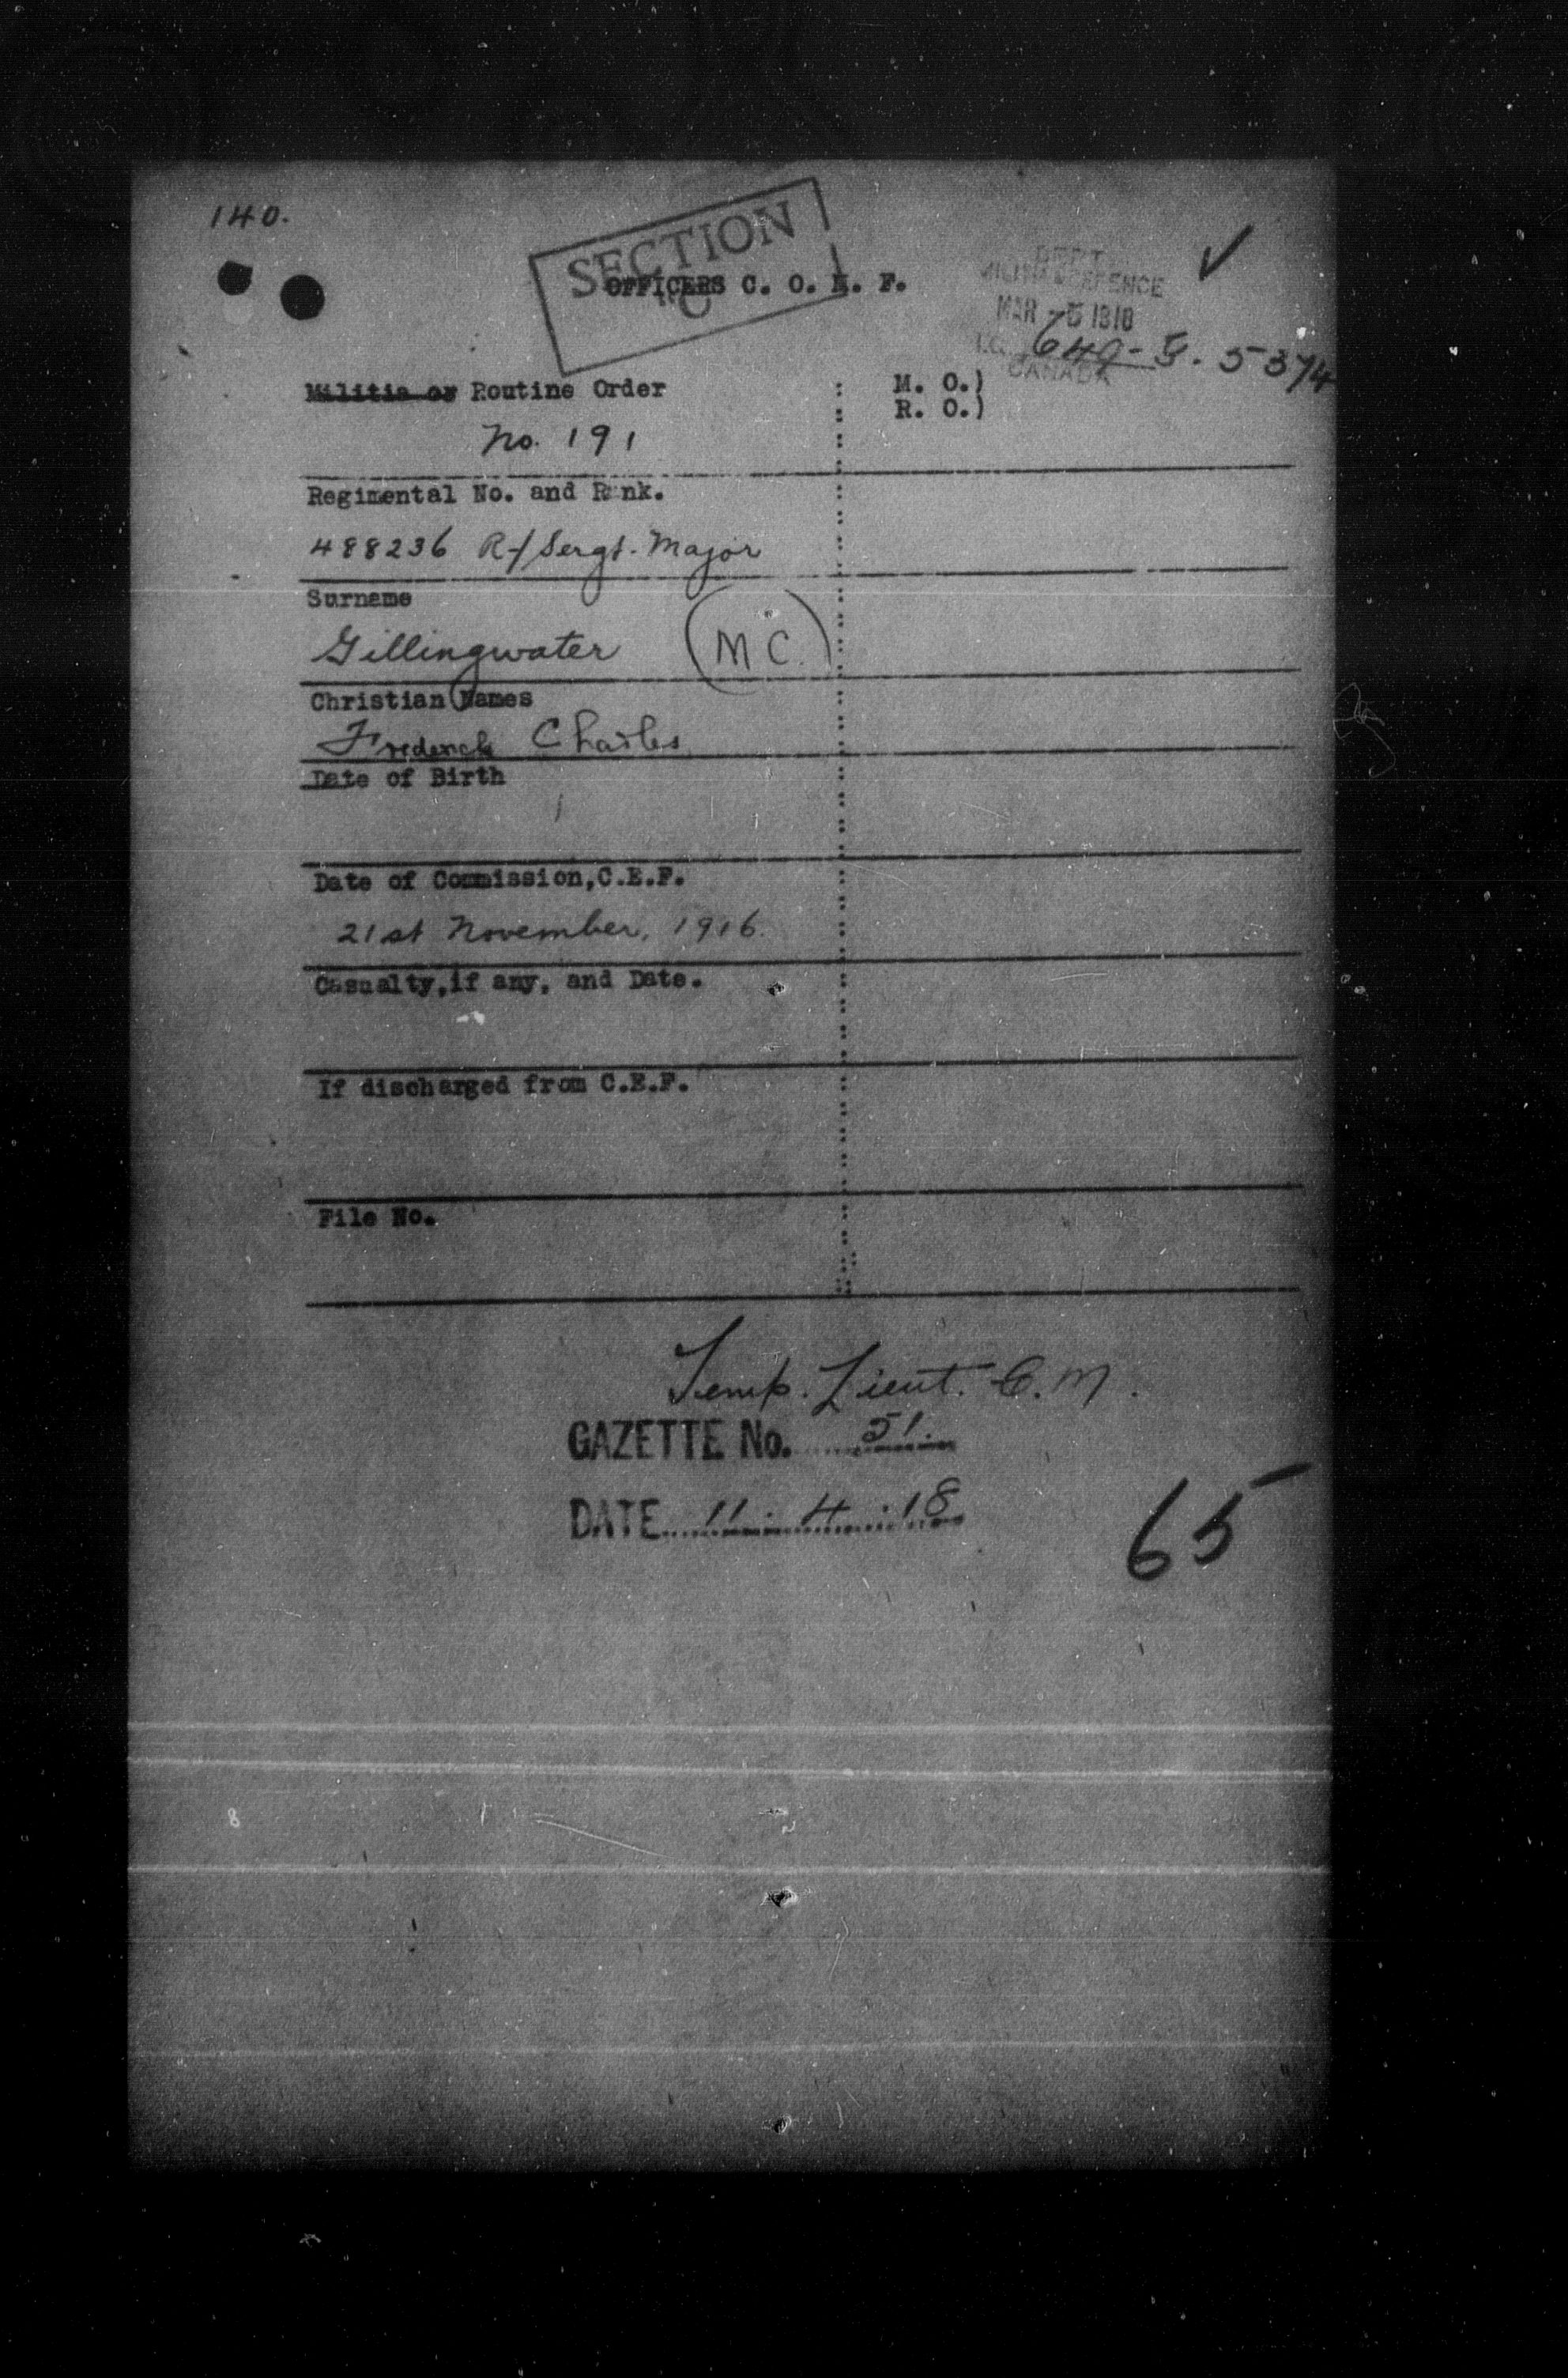 140.
SECTION
"C"
OFFICERS C. O. E. F.
DEPT.
MILITIA & DEFENCE
MAR -5 1918
CANADA
649-G. 5374
Militia or Routine Order
M. O.)
R. O.)
No. 191
Regimental No. and Rank.
488236 R/Sergt. Major
Surname
Gillingwater (MC.)
Christian Names
Frederick Charles
Date of Birth
Date of Commission, C.E.F.
21st November, 1916.
Casualty, if any, and Date.
If discharged from C.E.F.
File No.
Temp. Lieut. C. M.
GAZETTE No. 51.
DATE 11. 4. 18
65